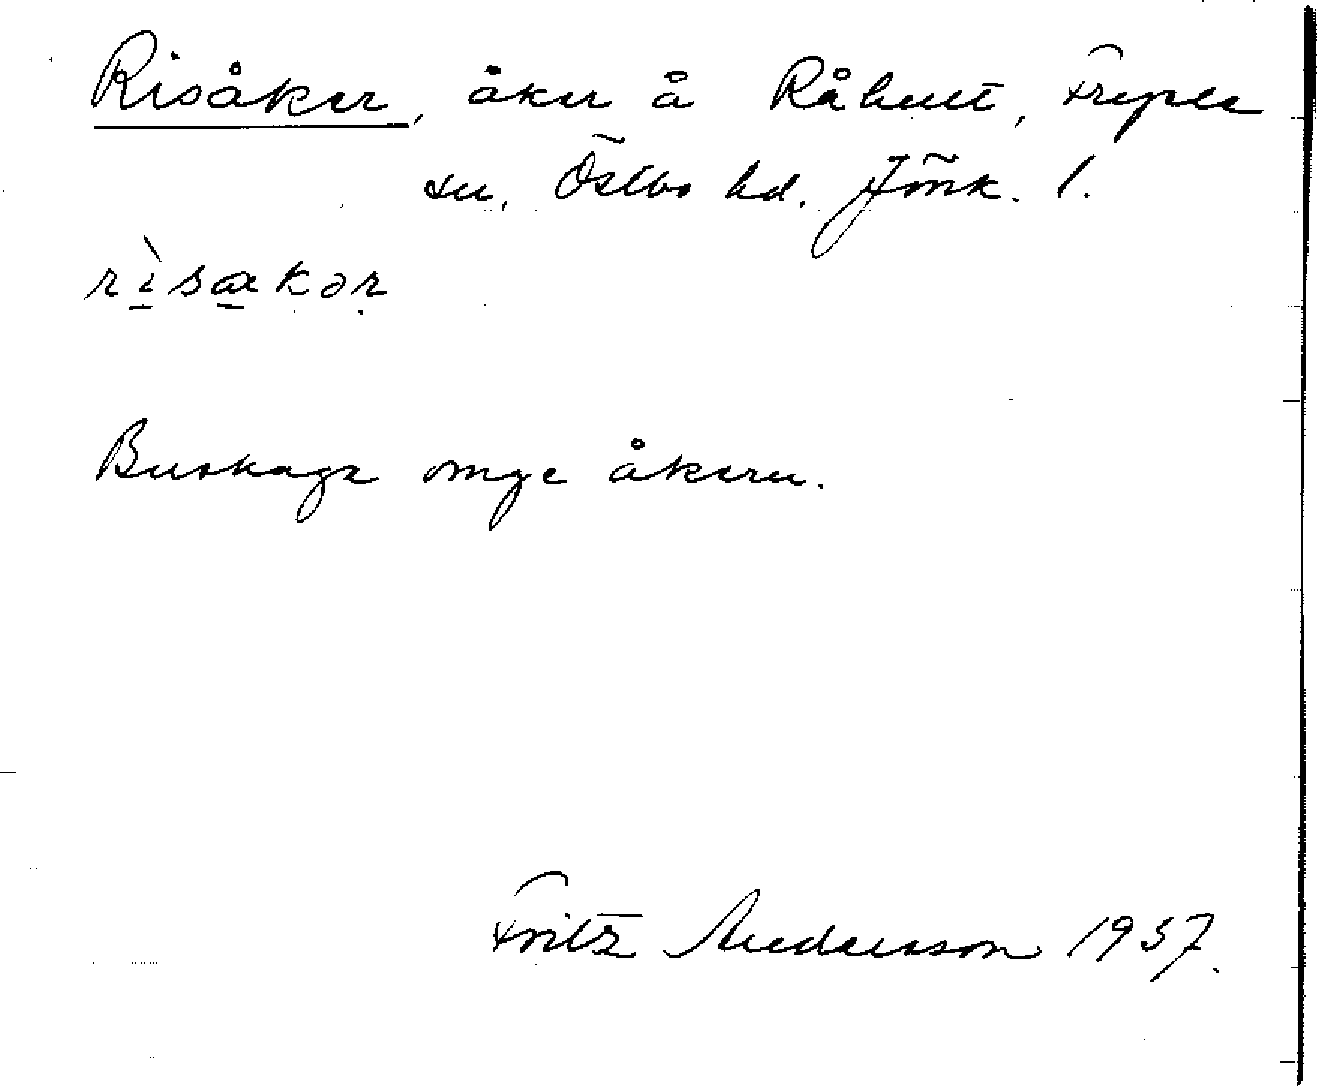 Risåker, åker å Råhult, Fryele
sn, Östbo hd. Jönk. l.
rìsakər
Buskage omge åkern.
Fritz Andersson 1937.